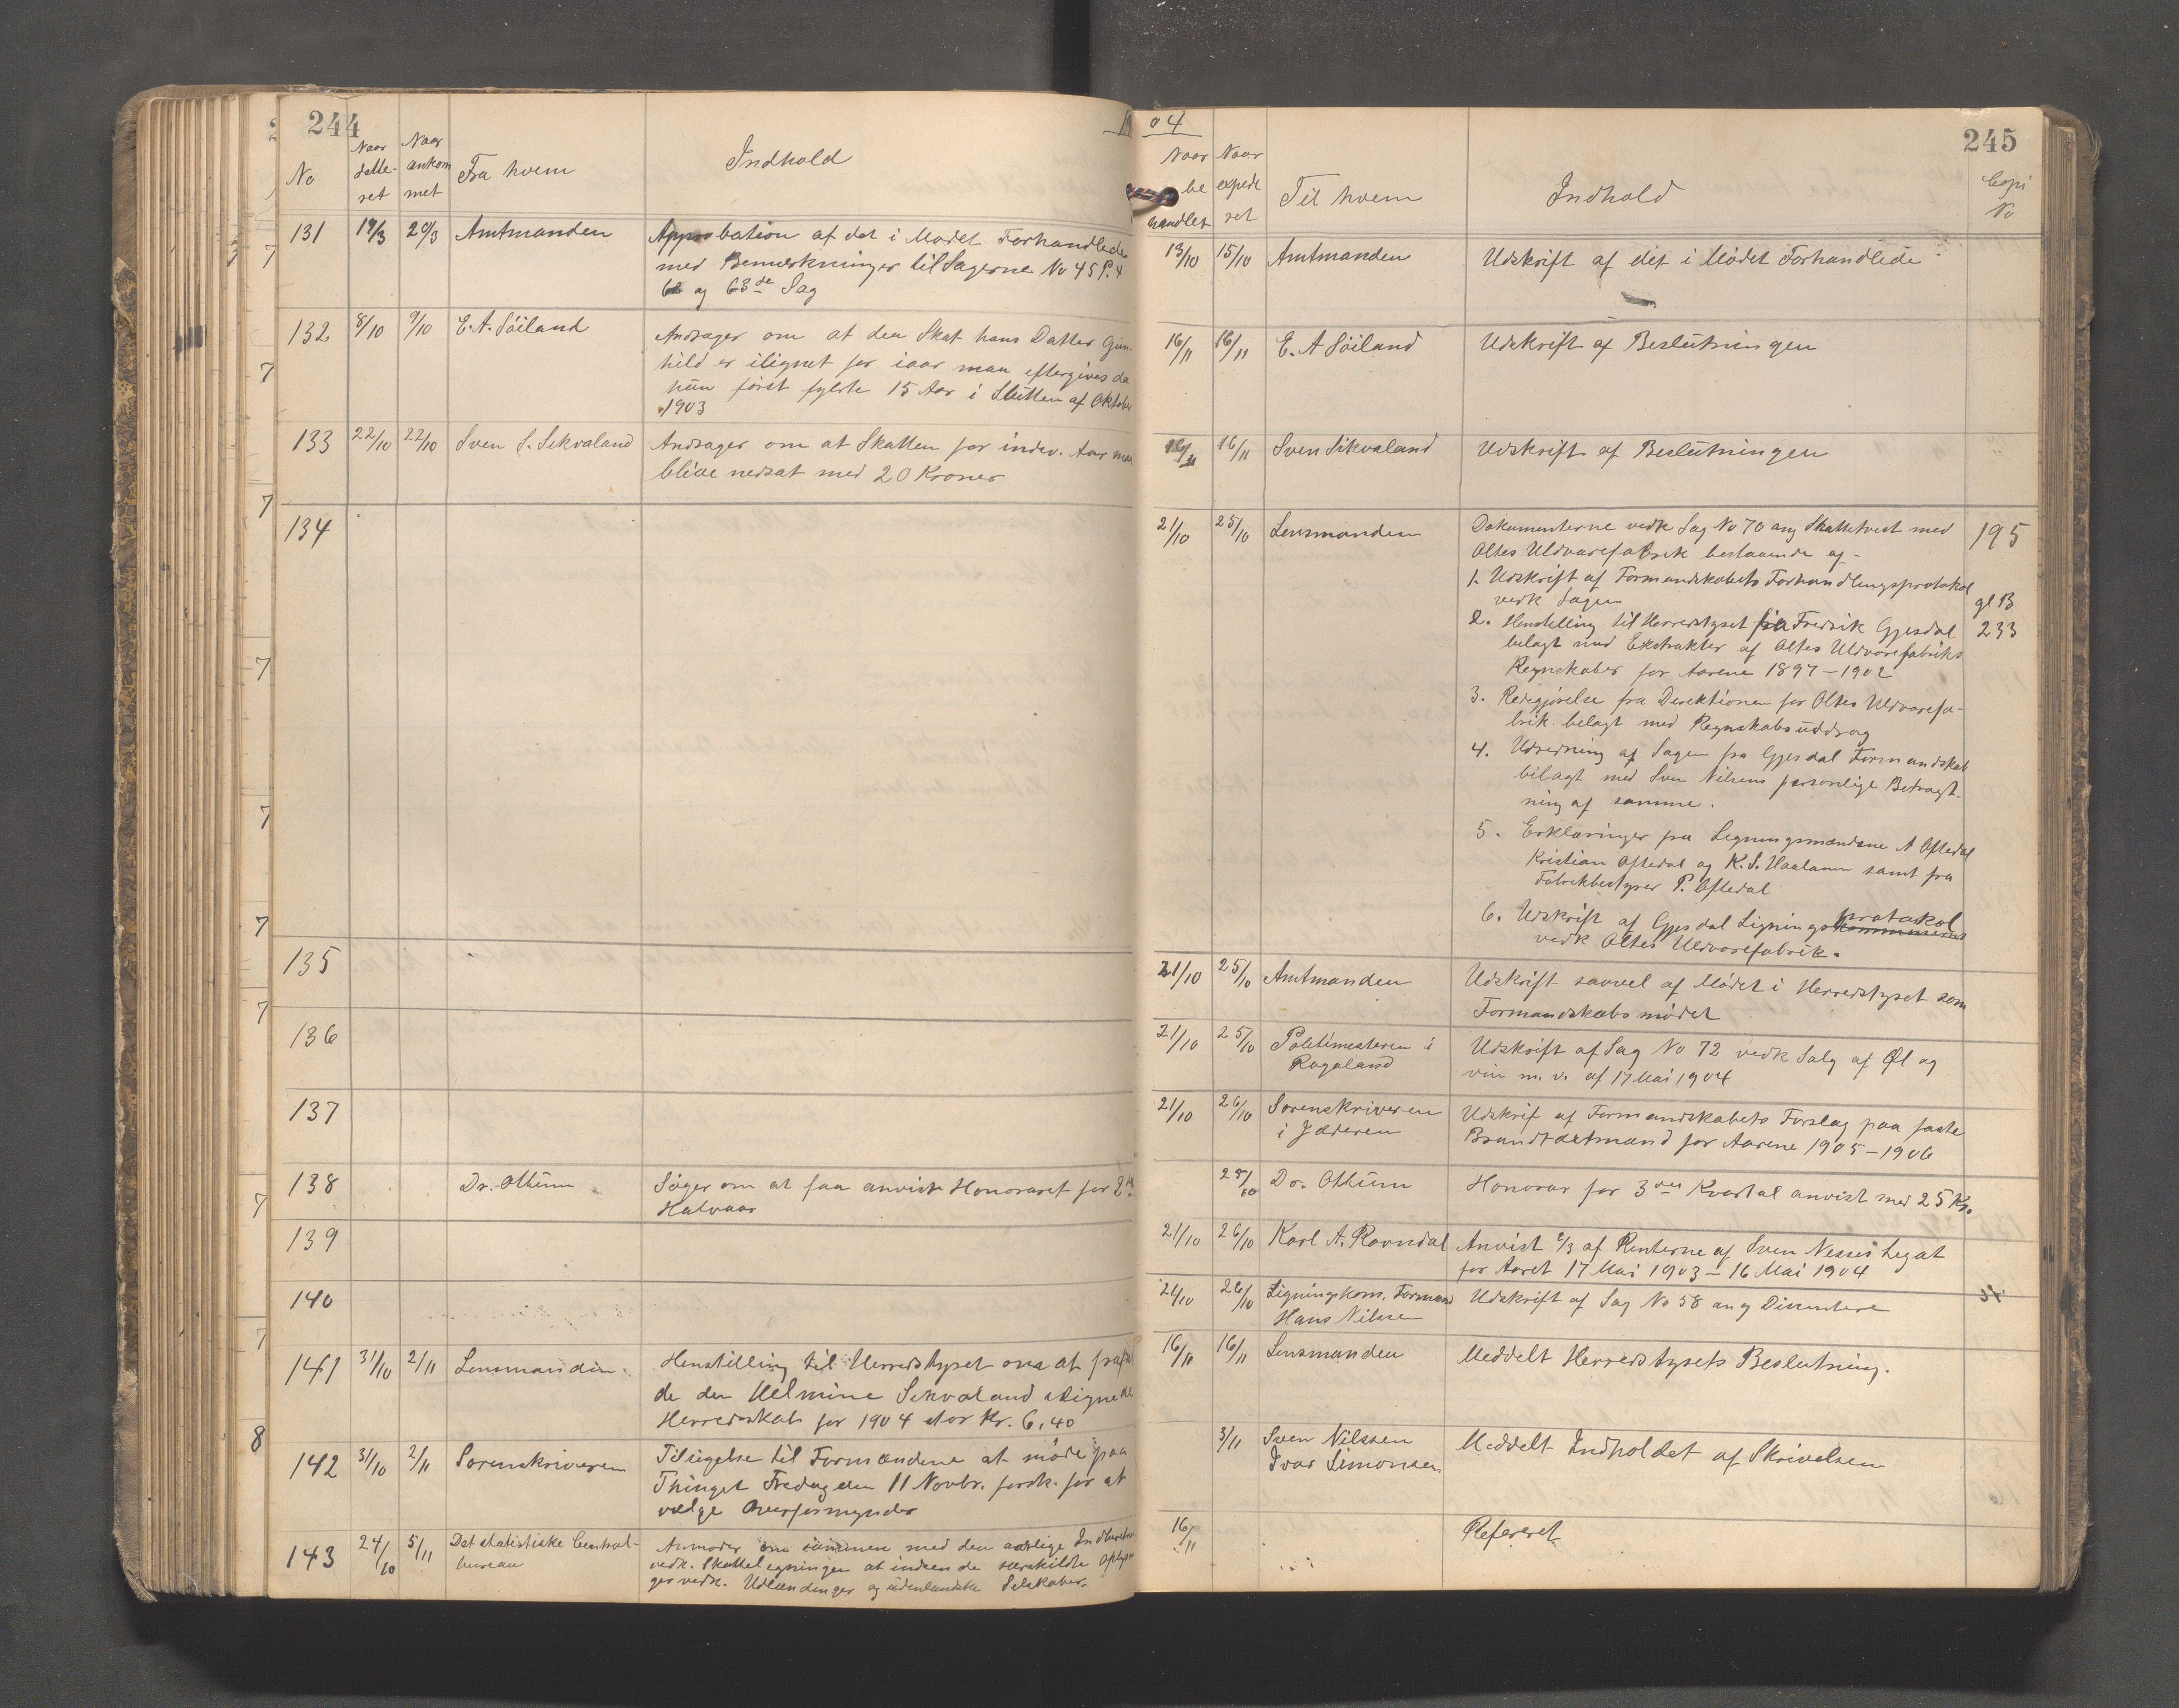 244
No
Naar
datte-
ret
Naar
ankom
met
Fra hvem
Indhold
19
131 19/3 20/3 Amtmanden
Approbation af det i Mødet Forhandlede
med Bemærkninger til Sagerne No 45 P. 4
62 og 63de Sag
132 8/10 9/10 E. A. Söiland
Andrager om at den Skat hans Datter Gun-
hild er ilignet for iaar maa eftergives da
hun först fyldte 15 Aar i Slutten af Oktober
1903
133 22/10 22/10 Sven S. Sikvaland
Andrager om at Skatten for indev. Aar maa
blive nedsat med 20 Kroner
134
135
136
137
138 Dr. Othum
Söger om at faa anvist Honoraret for 2det
Halvaar
139
140
141 31/10 2/11 Lensmanden
Henstilling til Herredstyret om at frafal
de den Helmine Sikvaland ilignede
Herredsskat for 1904 stor Kr. 6,40
142 31/10 2/11 Sorenskriveren
Tilsigelse til Formændene at møde paa
Thinget Fredag den 11 Novbr. førstk. for at
vælge Overformynder
143 24/10 5/11 Det statistiske Central-
bureau
Anmoder om sammen med den aarlige Indberetn
vedk. Skatteligningen at indsende særskildte Oplysn
ger vedk. Udlændinger og udenlandske Selskaber.
04
245
Naar
be
handlet
Naar
expede
ret
Til hvem
Indhold
Copi
No
13/10 15/10 Amtmanden
Udskrift af det i Mödet Forhandlede
16/11 16/11 E. A Söiland
Udskrift af Beslutningen
16/11 16/11 Sven Sikvaland
Udskrift af Beslutningen
21/10 25/10 Lensmanden
Dokumenterne vedk Sag No 70 ang Skattetvist med 195
Oltes Uldvarefabrik bestaaende af -
1. Udskrift af Formandskabets Forhandlingsprotokol
vedk Sagen gl B
2. Henstilling til Herredstyret fra Fredrik Gjesdal 233
belagt med Ekstrakter af Oltes Uldvarefabriks
Regnskaber for Aarene 1897 - 1902
3. Redegjørelse fra Direktionen for Oltes Uldvarefa-
brik belagt med Regnskabsuddrag
4. Udredning af Sagen fra Gjesdal Formandskab
bilagt med Sven Nilsens personlige Betragt-
ning af samme.
5. Erklæringer fra Ligningsmændene A Oftedal
Kristian Oftedal og K. S. Haaland samt fra
Fabrikbestyrer P. Oftedal
6. Udskrift af Gjesdal Ligningsprotokol
vedk Oltes Uldvarefabrik.
21/10 25/10 Amtmanden
Udskrift saavel af Mødet i Herredstyret som
Formandskabsmødet
21/10 25/10 Politimesteren i
Rogaland
Udskrift af Sag No 72 vedk Salg af Øl og
vin m. v. af 17 Mai 1904
21/10 26/10 Sorenskriveren
i Jæderen
Udskrif af Formandskabets Forslag paa faste
Brandtaxtmænd for Aarene 1905 - 1906
25/10 Dr. Othum
Honorar for 3die Kvartal anvist med 25 Kr.
21/10 26/10 Karl A. Ravndal
Anvist 2/3 af Renterne af Sven Nesses Legat
for Aaret 17 Mai 1903 - 16 Mai 1904
24/10 26/10 Ligningskom. Formand
Hans Nilssen
Udskrift af Sag No 58 ang Dissentere
16/11 16/11 Lensmanden
Meddelt Herredstyrets Beslutning.
3/11 Sven Nilssen
Ivar Simonsen
Meddelt Indholdet af Skrivelsen
16/11
Refereret